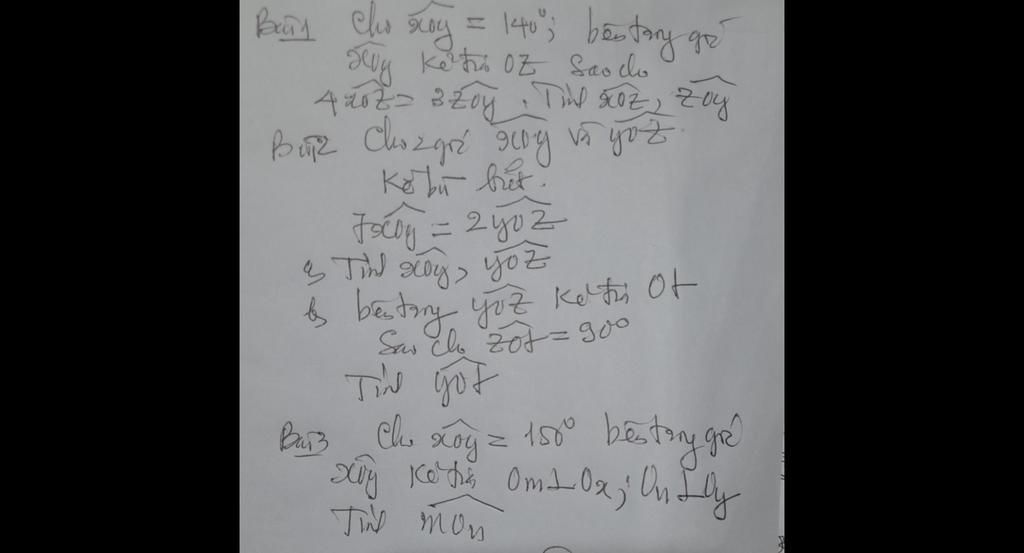 Bài 1 Cho xOy = 140°; bên trong góc
xOy Kẻ tia OZ Sao cho
4 xOZ = 3 ZOy. Tính xOZ, ZOy
Bài 2 Cho 2 góc xOy và yOZ
Kề bù biết.
7 xOy = 2 yOZ
a, Tính xOy, yOZ
b, bên trong yOZ Kẻ tia Ot
Sao cho ZOt = 90°
Tính yOt
Bài 3 Cho xOy = 150° bên trong góc
xOy Kẻ tia Om⊥Ox; On⊥Oy
Tính mOn